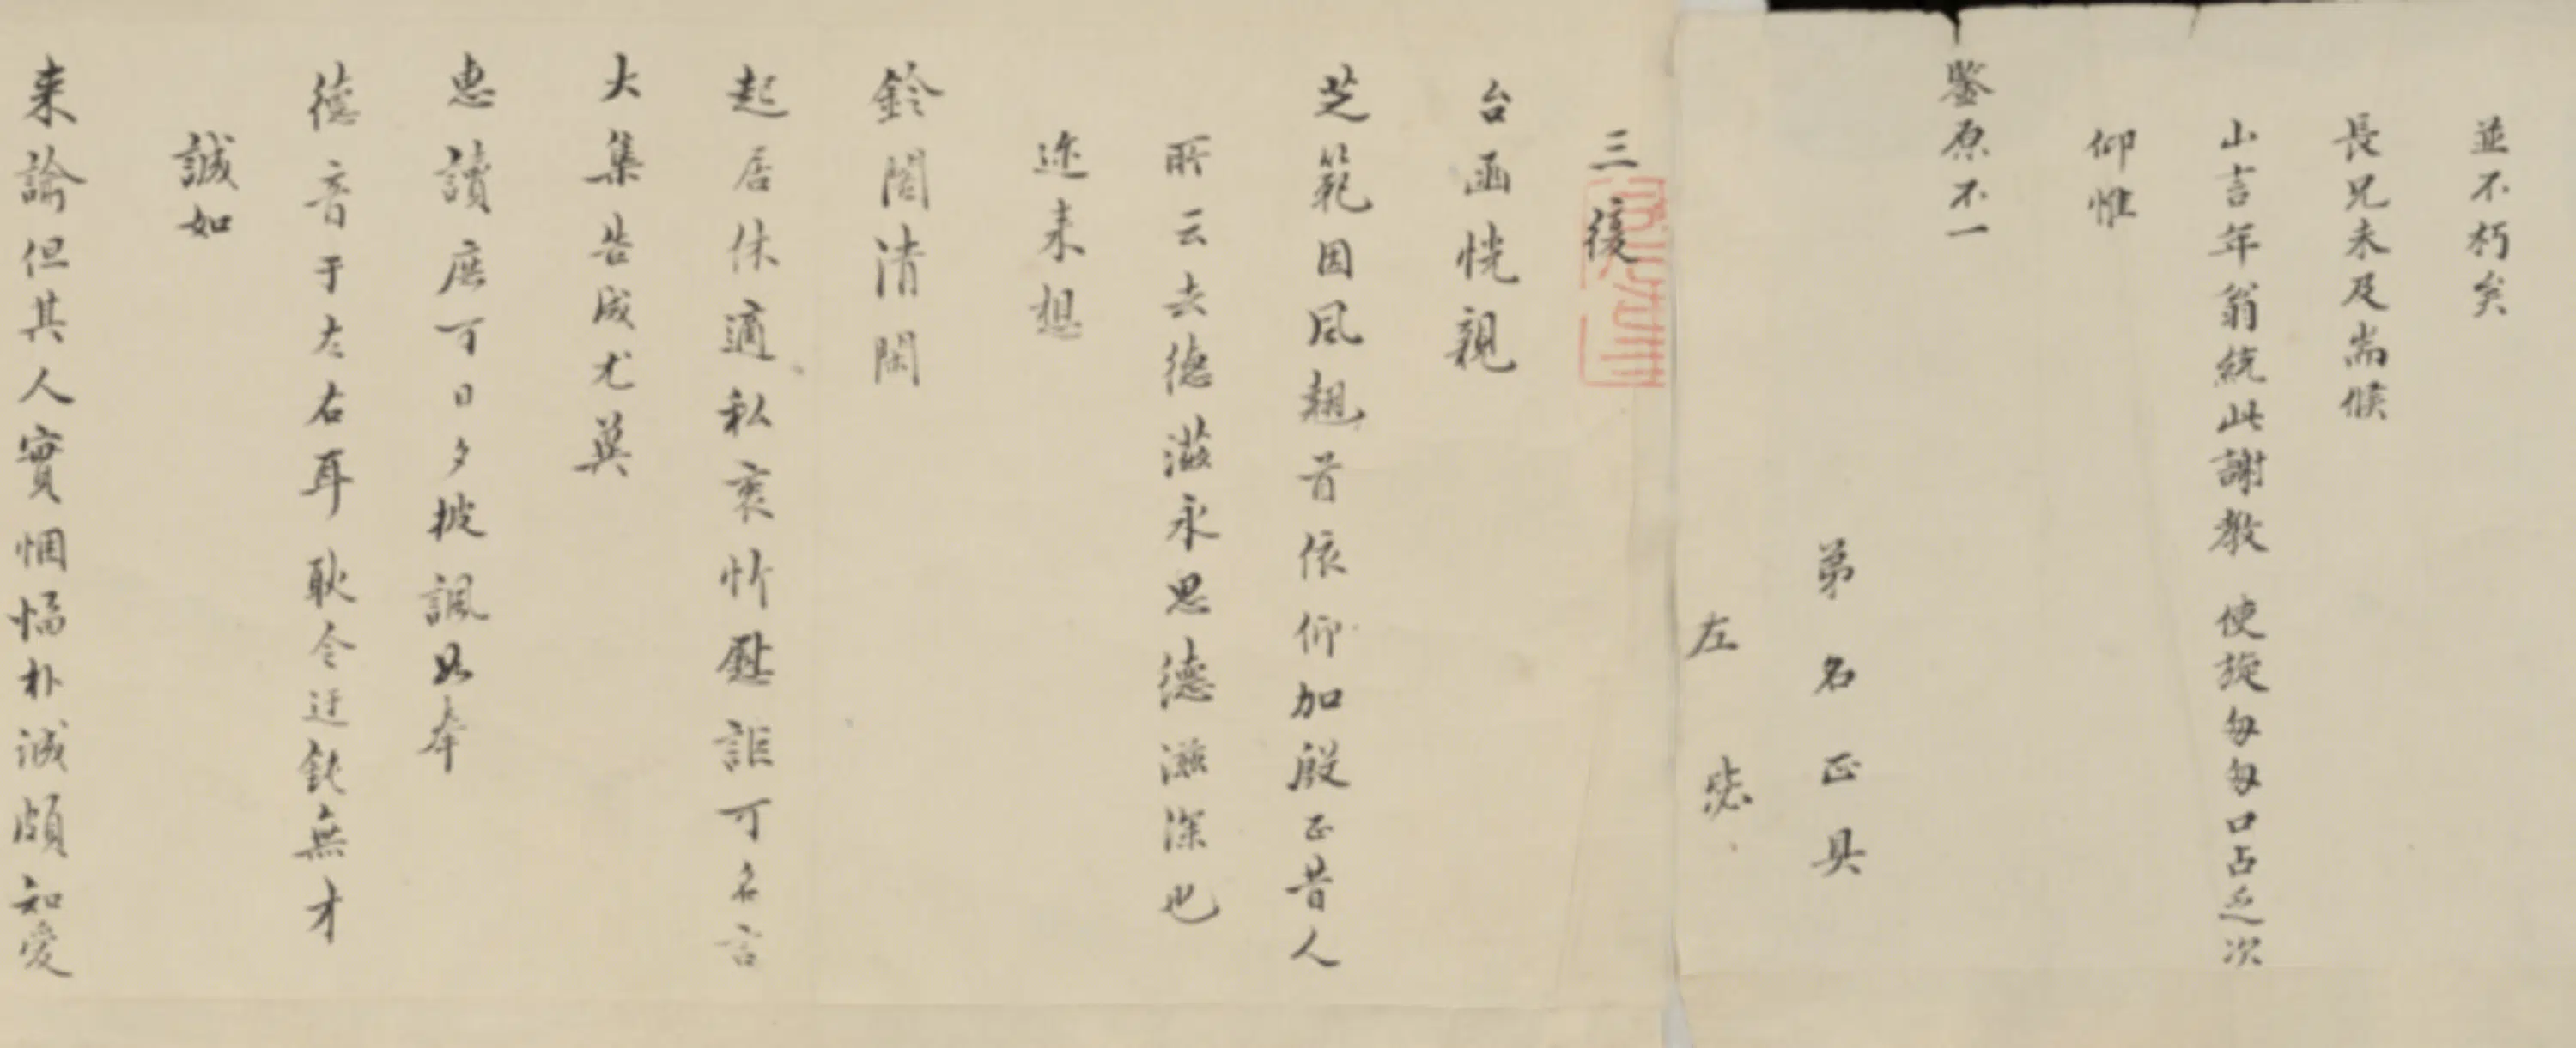 並不朽矣
長兄未及耑候
山言年翁統此謝教 使旋匆匆口占乏次
仰惟
鑒原不一
弟名正具
左
三復
台函恍親
芝範因風翹首依仰加殷正昔人
所云去德滋永思德滋深也
迩来想
鈴閣清閑
起居休適私衷忻慰詎可名言
大集告成尤莫
惠讀庶可日夕披諷如奉
德音于左右耳耿令迂鈍無才
誠如
来諭但其人實悃愊朴誠頗知愛